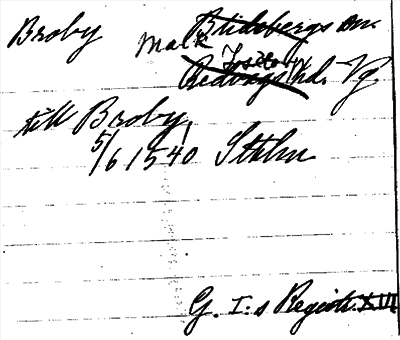 Broby Malt Blidsbergs sn.
Tosseby
Redvägs hd. Vg.
till Broby,
5/6 1540 Sthlm
G. I:s Registr. XIII